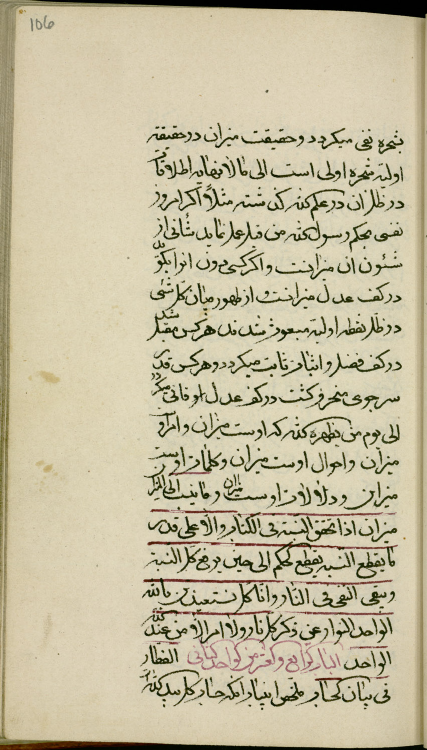 106
بشجره نفی میگردد و حقیقت میزان در حقیقة
اولیة شجره اولی است الی مالانهایه اطلاقات
در ظل ان در علم گذشته مثلاً اگر امروز
نفسی بحکم رسول من قبل عمل نماید شأنی از
شئون ان میزانست و اگر کسی دون انرا بگوید
در کف عدل میزانست و از ظهور بیان کل شئی
در ظل نقطه اولیة مبعوث شد هر کس مقبل شد
در کف فصل و اثبات ثابت میگردد و هر کس قدر
سر جوی منحرف گشت در کف عدل او فانی میگردد
الی یوم من یظهره که اوست میزان و امر او
میزان و احوال اوست میزان و کلمات اوست
میزان و دلالات اوست میزان و مانیت الی الله
میزان اذا تحقق النسبة فی الکتاب والا علی قدر
ما یقطع النسبة یقطع الحکم الی حین یرفع کل النسبة
ویبقی النفی فی النار وانا کل نستعیذن بالله
الواحد النوار عن ذکر کل نار ولا امر الا من عند الله
الواحد الباب الرابع والعشر من الواحد الثانی القطار
فی بیان الحساب ملخص این باب انکه حساب کل بید الله